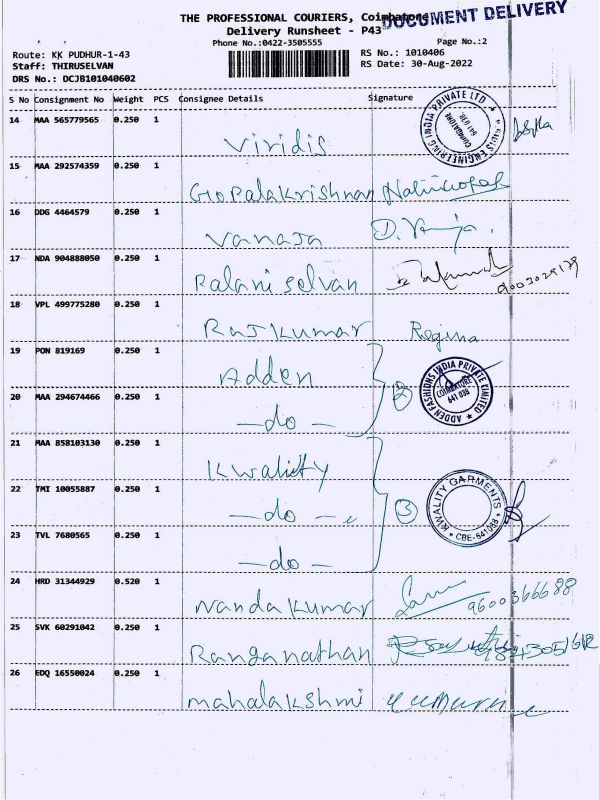 DOCUMENT DELIVERY
THE PROFESSIONAL COURIERS, Coimbatore
Delivery Runsheet - P43
Phone No.:0422-3505555
Page No.:2
Route: KK PUDHUR-1-43
RS No.: 1010406
Staff: THIRUSELVAN
RS Date: 30-Aug-2022
DRS No.: DCJB101040602
S No Consignment No Weight PCS Consignee Details Signature
14 MAA 565779565 0.250 1
Viridis
ENGINEERING INDIA PRIVATE LTD
COIMBATORE
641 038
15 MAA 292574359 0.250 1
Gopalakrishnan
16 DDG 4464579 0.250 1
Vanaja
17 NDA 904888050 0.250 1
Palani Selvan
9003029179
18 VPL 499775280 0.250 1
Rajkumar Regina
19 PON 819169 0.250 1
Adden
20 MAA 294674466 0.250 1
-do- 2
ADDEN FASHIONS INDIA PRIVATE LIMITED
COIMBATORE
641 038
21 MAA 858103130 0.250 1
Kwality
22 TMI 10055887 0.250 1
-do- 3
KWALITY GARMENTS
* CBE-641088 *
23 TVL 7680565 0.250 1
-do-
24 HRD 31344929 0.520 1
Nanda Kumar 9600366688
25 SVK 60291042 0.250 1
Ranganathan
26 EDQ 16550024 0.250 1
Mahalakshmi